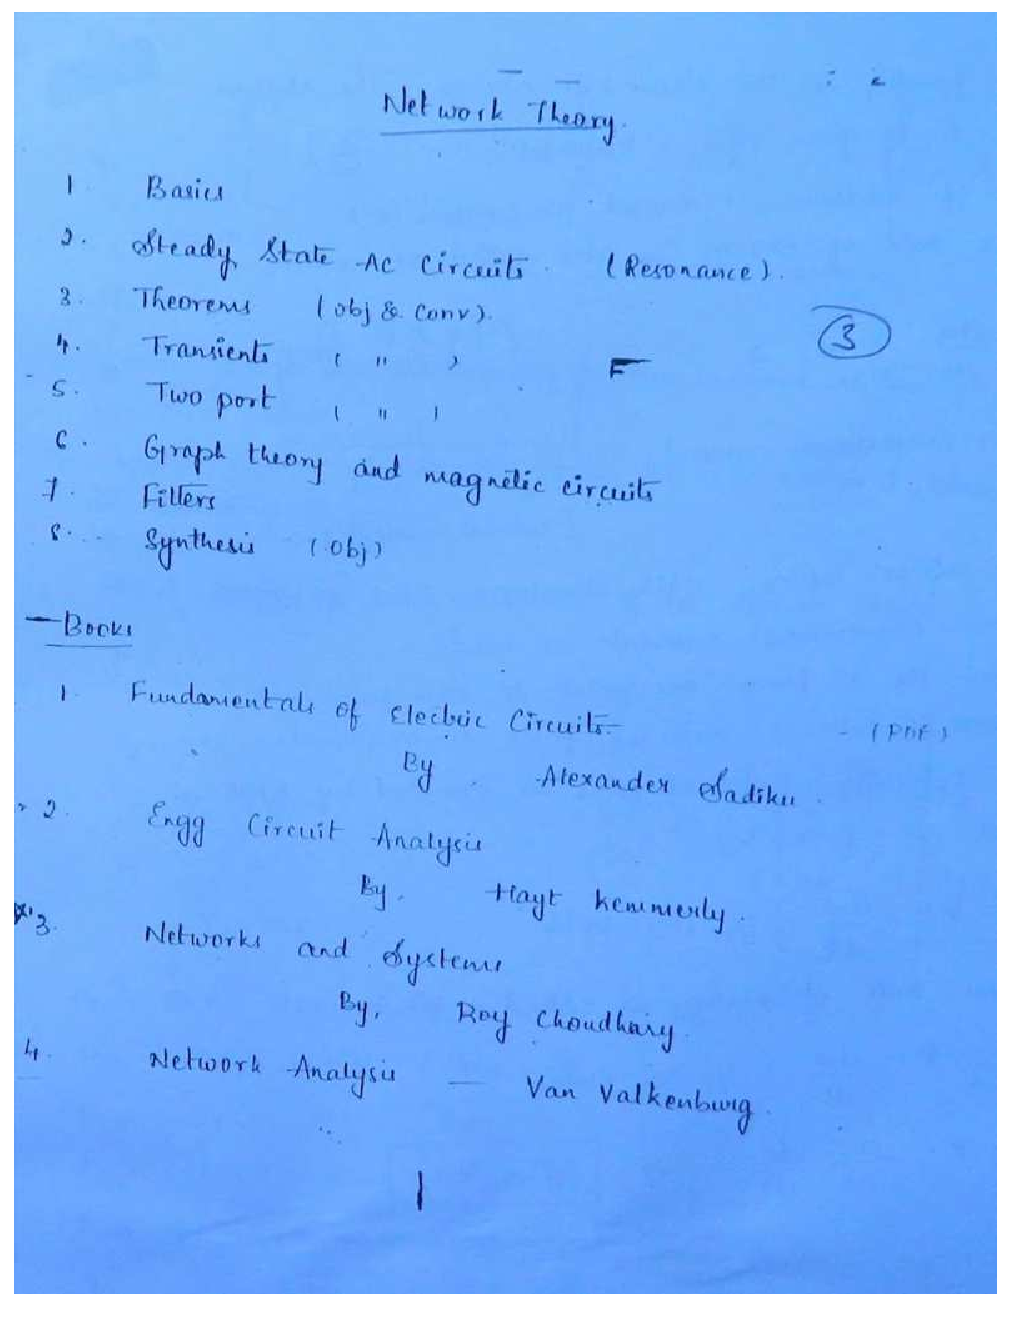 Network Theory.
1. Basics
2. Steady State AC Circuits. (Resonance).
3. Theorems (obj & Conv).
③
4. Transients ( " )
5. Two port ( " )
6. Graph theory and magnetic circuits
7. Filters
8. Synthesis (obj)
Books
1. Fundamentals of Electric Circuits. - (PDF)
By. Alexander Sadiku.
2. Engg Circuit Analysis
By. Hayt Kemmerly.
3. Networks and Systems
By, Roy Choudhary.
4. Network Analysis — Van Valkenburg.
1